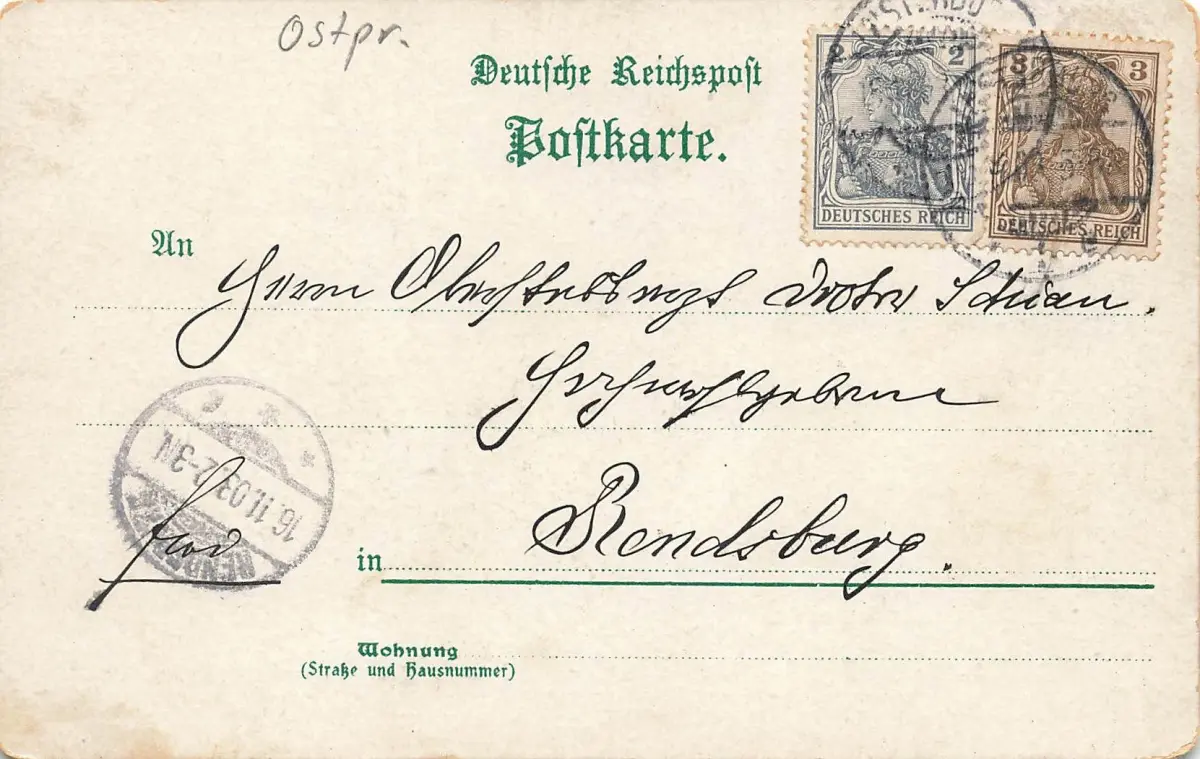 Ostpr.
Deutsche Reichspost
Postkarte.
2 2
3 3
DEUTSCHES REICH
DEUTSCHES REICH
An
Herrn Oberstabsarzt
Hochwohlgeboren
16.11.03. 2-3N
RENDS
frei
in Rendsburg.
Wohnung
(Straße und Hausnummer)